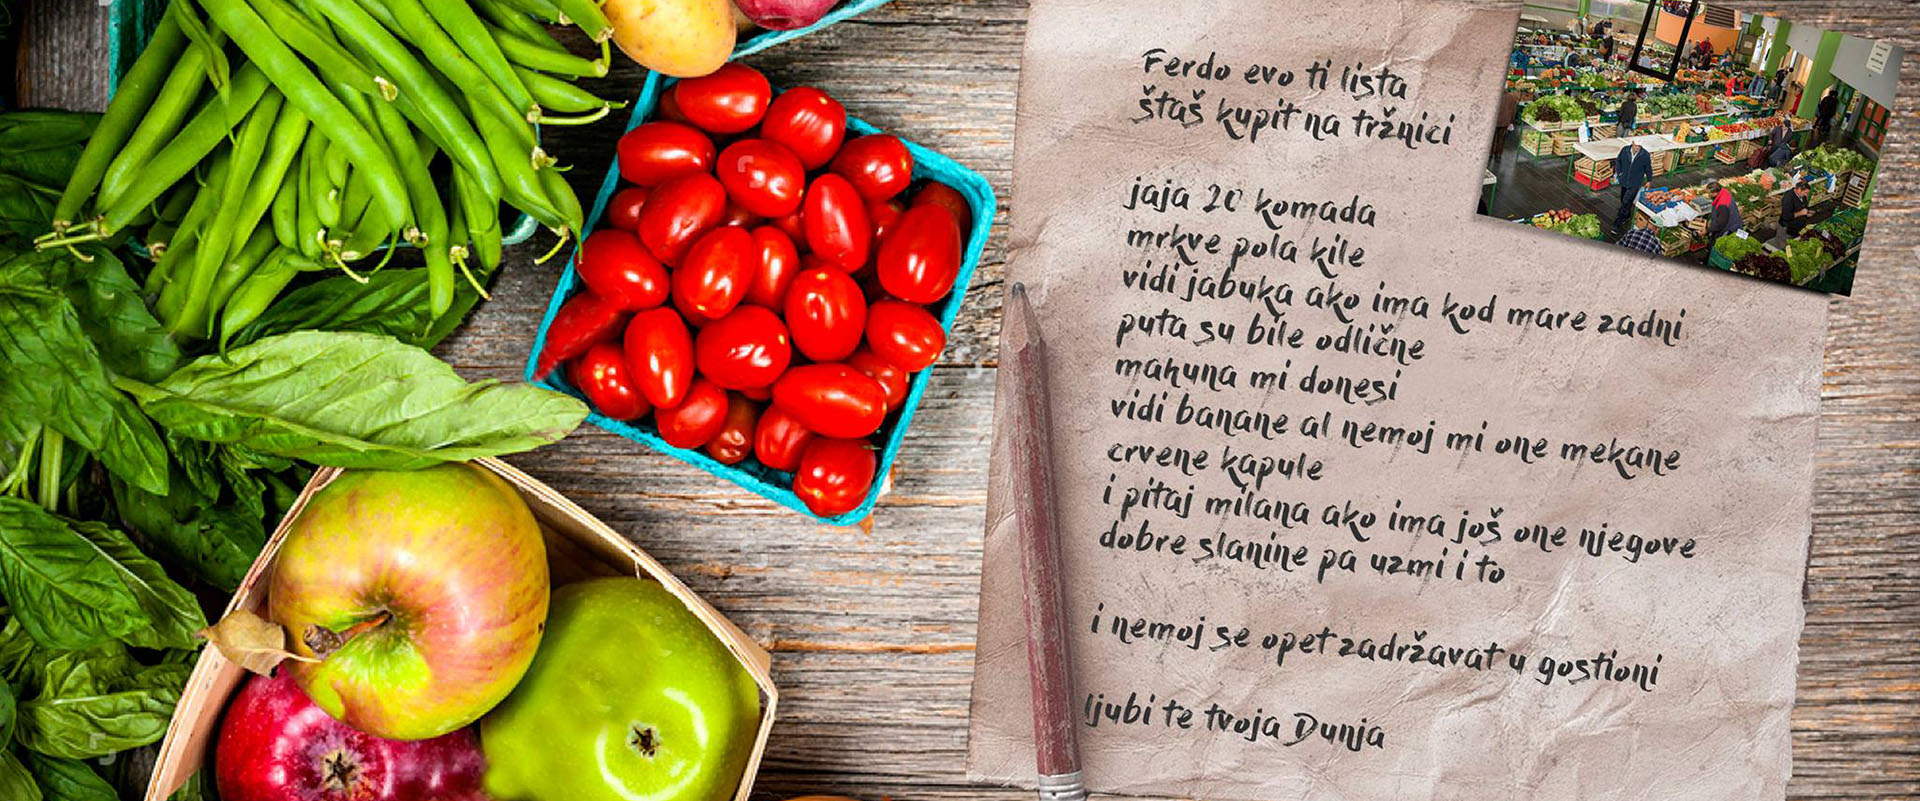 Ferdo evo ti lista
štaš kupit na tržnici
jaja 20 komada
mrkve pola kile
vidi jabuka ako ima kod mare zadni
puta su bile odlične
mahuna mi donesi
vidi banane al nemoj mi one mekane
crvene kapule
i pitaj milana ako ima još one njegove
dobre slanine pa uzmi i to
i nemoj se opet zadržavat u gostioni
ljubi te tvoja Dunja